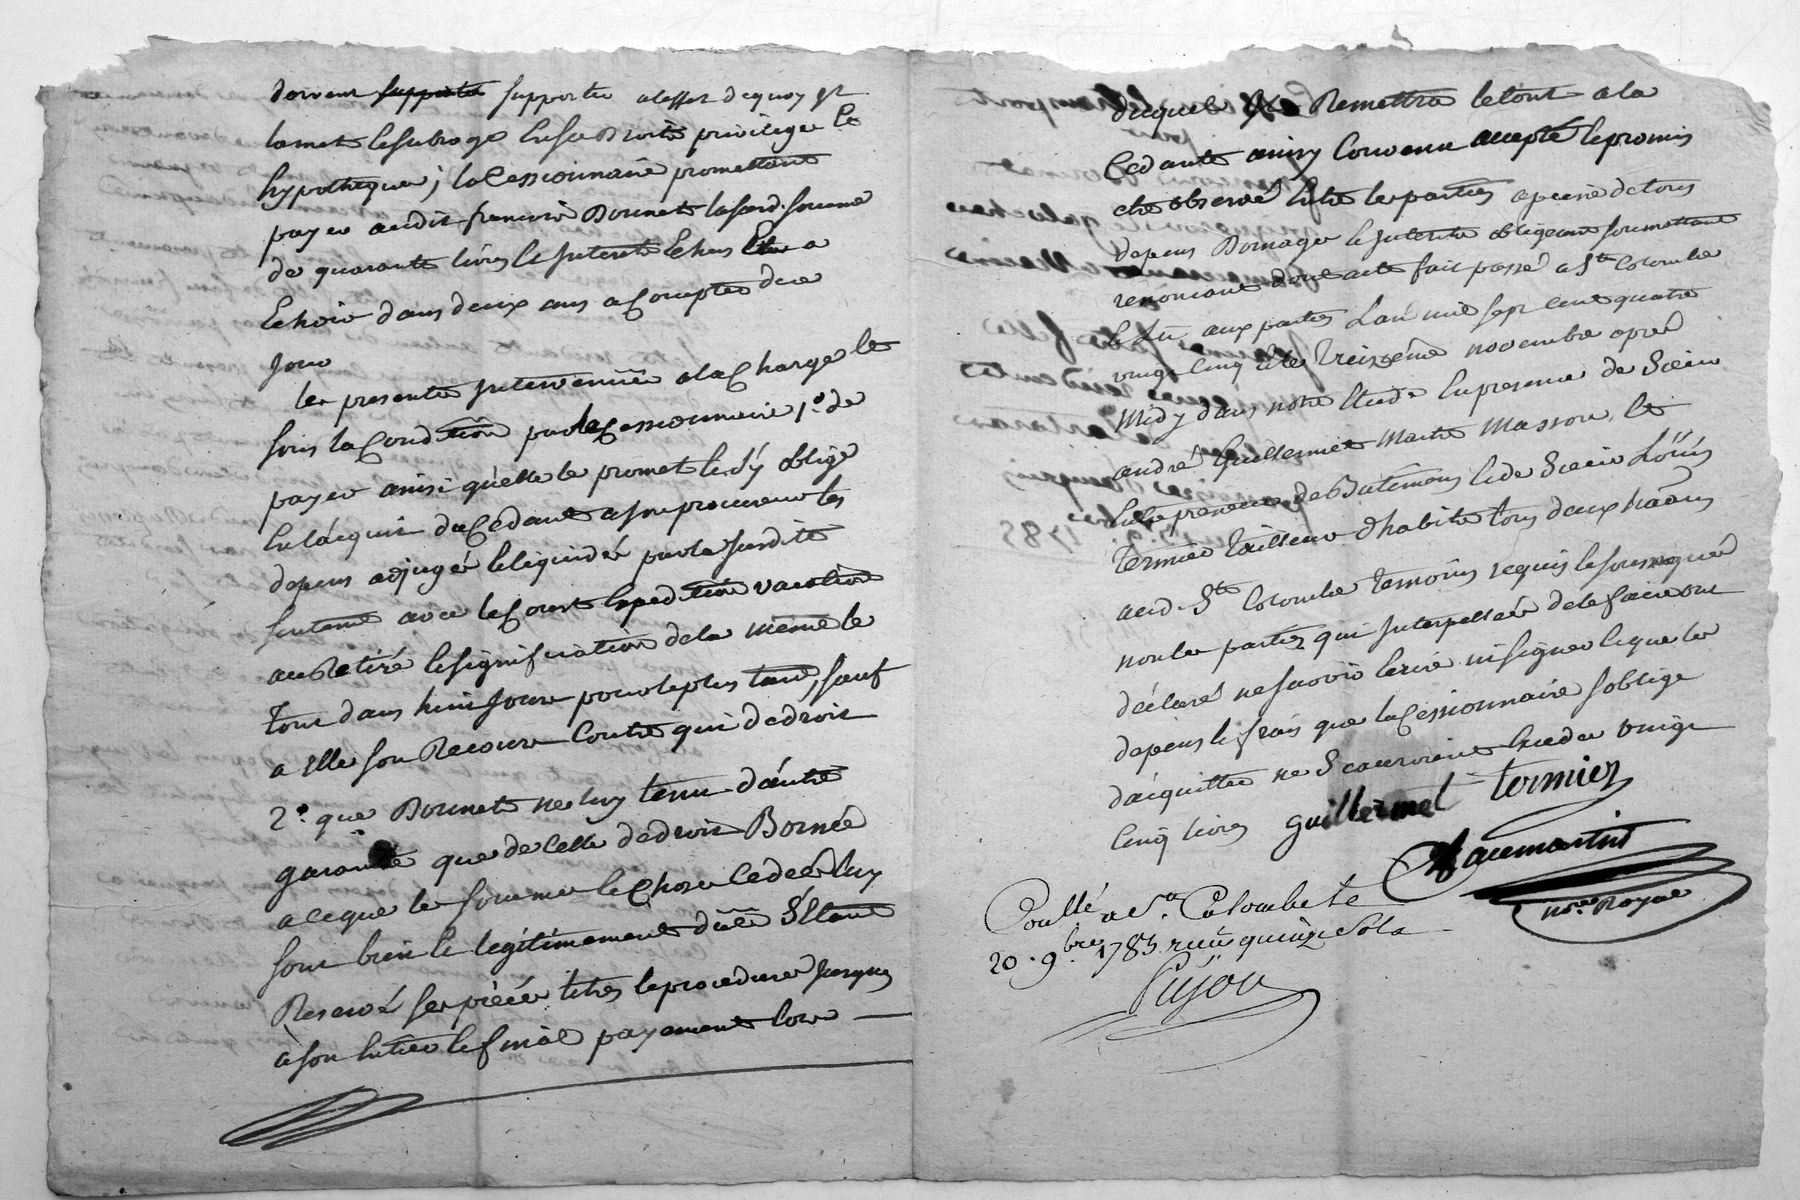 doivent supporter supporter a leffet dequoy il
lamet le subroge en ses droits privilege et
hypotheque ; la Cessionnaire promettant
payer audit francois Bonnet la susd. somme
de quarante livres et interets Echus Et a
Echoir dans deux ans a Compter de ce
jour
les presentes intervenues a la Charge et
sous la Condition par la Cessionnaire 1.° de
payer ainsi quelle le promet et sy oblige
En l'acquit du Cedant a son procureur les
depens adjugés et liquidés par la susdite
sentence avec le Cout Expedition vacation
au Retiré et signification de la même le
tout dans huit jours pour le plus tard, sauf
a Elle son Recours Contre qui de droit
2.° que Bonnet nest tenu d'autre
garantie que de Celle de droit Bornée
a ce que les sommes et Choses Cedées luy
sont bien et legitimement düés S'Etant
Reservé ses pièces titres et procedures jusques
à son Entier et final payement lors
duquel Il Remettra le tout a la
Cedante ainsy Convenu accepté et promis
etre observé Entre les parties a peine de tous
depens Domages et Interets obligeant soumettant
renoncant dont acte fait passé a Ste Colombe
et Lu aux parties L'an mil sept cent quatre
vingt cinq et le treizeme novembre après
Midy dans notre Etude En presence de Sieur
andré Guillermet Maitre Masson, et
Entrepreneur de Batimens et de Sieur Loüis
termier tailleur d'habits tous deux hãns
aud. Ste Colombe temoins requis et soussignés
non les parties qui Interpellées de le faire ont
déclaré ne savoir Ecrire ni signer et que les
depens et frais que la Cessionnaire s'oblige
d'acquitter ne Scauroient Exceder vingt
Cinq livres guillermet termier
not.re Royal
Conllé a Ste Colombe le
20. 9.bre 1785 reçu quinze Sols
Pujon